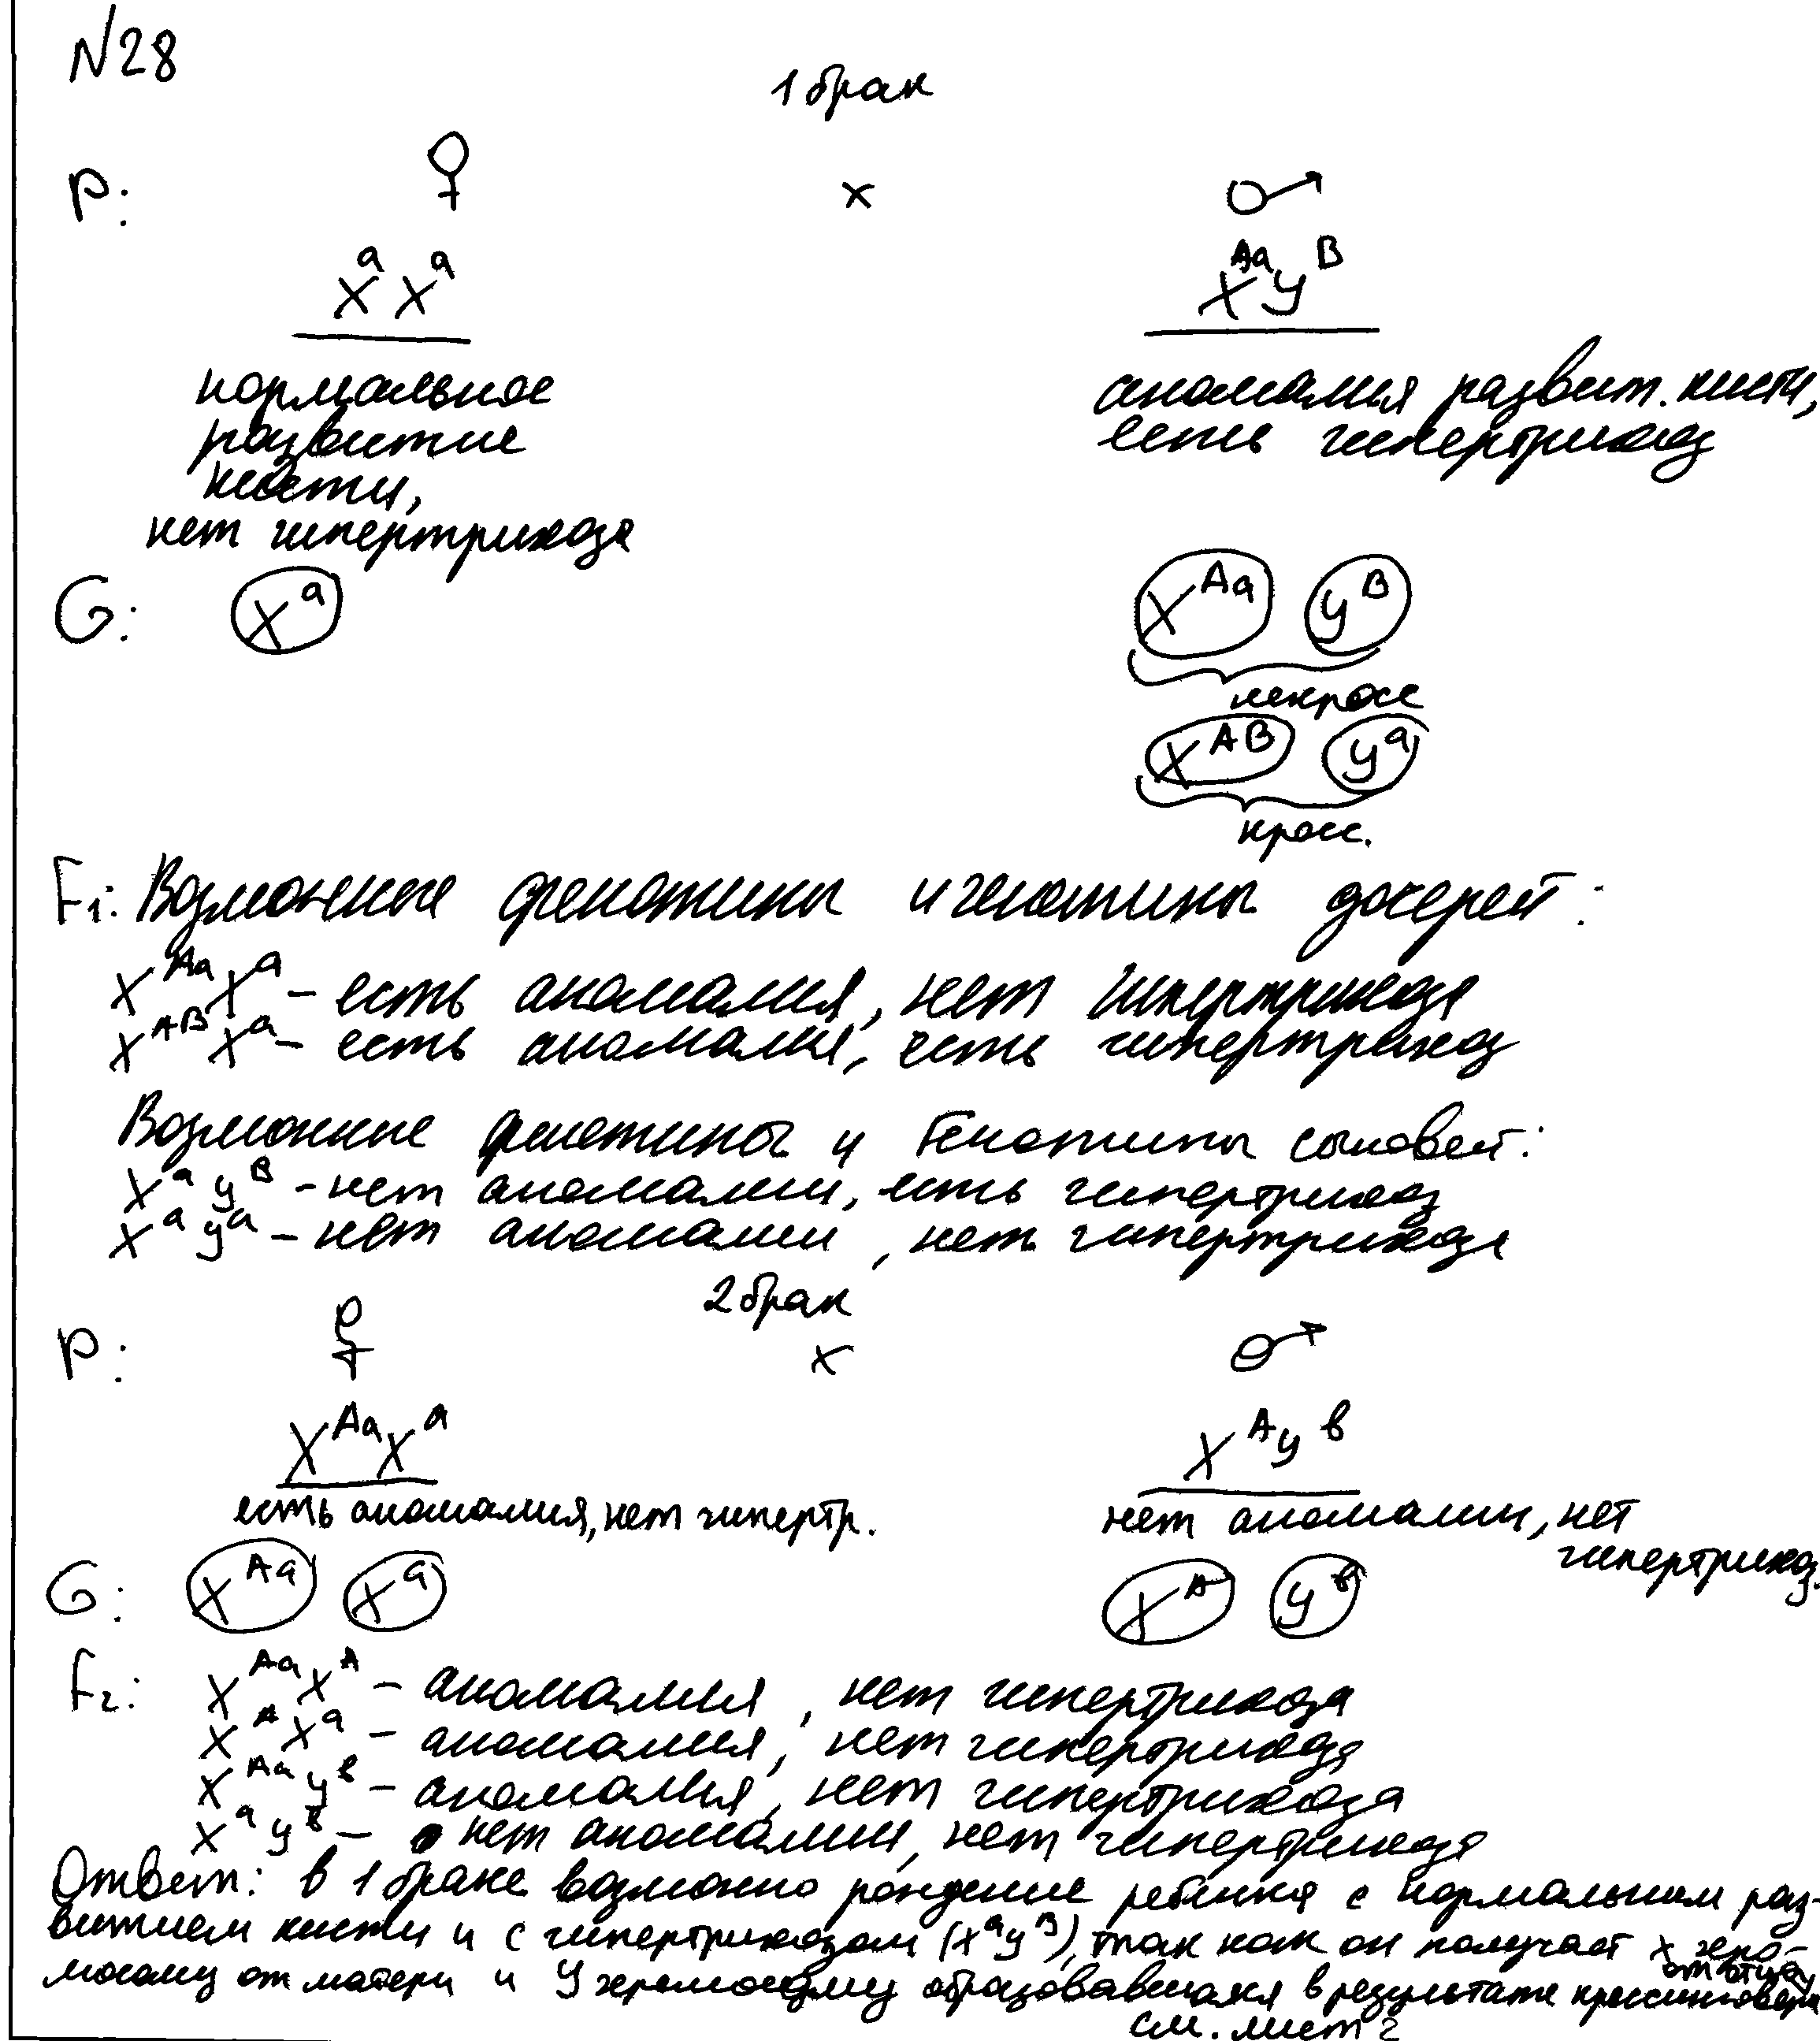 N28
1 брак
P: ♀ x ♂
XᵃXᵃ XᴬᵃYᴮ
нормальное развитие кисти, нет гипертрихоза
аномалия развит. кисти,
есть гипертрихоз
G: Xᵃ Xᴬᵃ Yᴮ
некросс
Xᴬᴮ Yᵃ
кросс.
F₁: Возможные фенотипы и генотипы дочерей:
XᴬᵃXᵃ – есть аномалия, нет гипертрихоза
XᴬᴮXᵃ – есть аномалия, есть гипертрихоз
Возможные фенотипы и генотипы сыновей:
XᵃYᴮ – нет аномалии, есть гипертрихоз
XᵃYᵃ – нет аномалии, нет гипертрихоза
2 брак
P: ♀ x ♂
XᴬᵃXᵃ XᴬYᵇ
есть аномалия, нет гипертр.
нет аномалии, нет
гипертрихоз.
G: Xᴬᵃ Xᵃ Xᴬ Yᵇ
F₂: XᴬᵃXᴬ – аномалия, нет гипертрихоза
XᴬXᵃ – аномалия, нет гипертрихоза
XᴬᵃYᵇ – аномалия, нет гипертрихоза
XᵃYᵇ – нет аномалии, нет гипертрихоза
Ответ: в 1 браке возможно рождение ребёнка с нормальным раз-
витием кисти и с гипертрихозом (XᵃYᴮ), так как он получает X хромо-
мосому от матери и Y хромосому от отца, образовавшаяся в результате кроссинговера
см. лист 2